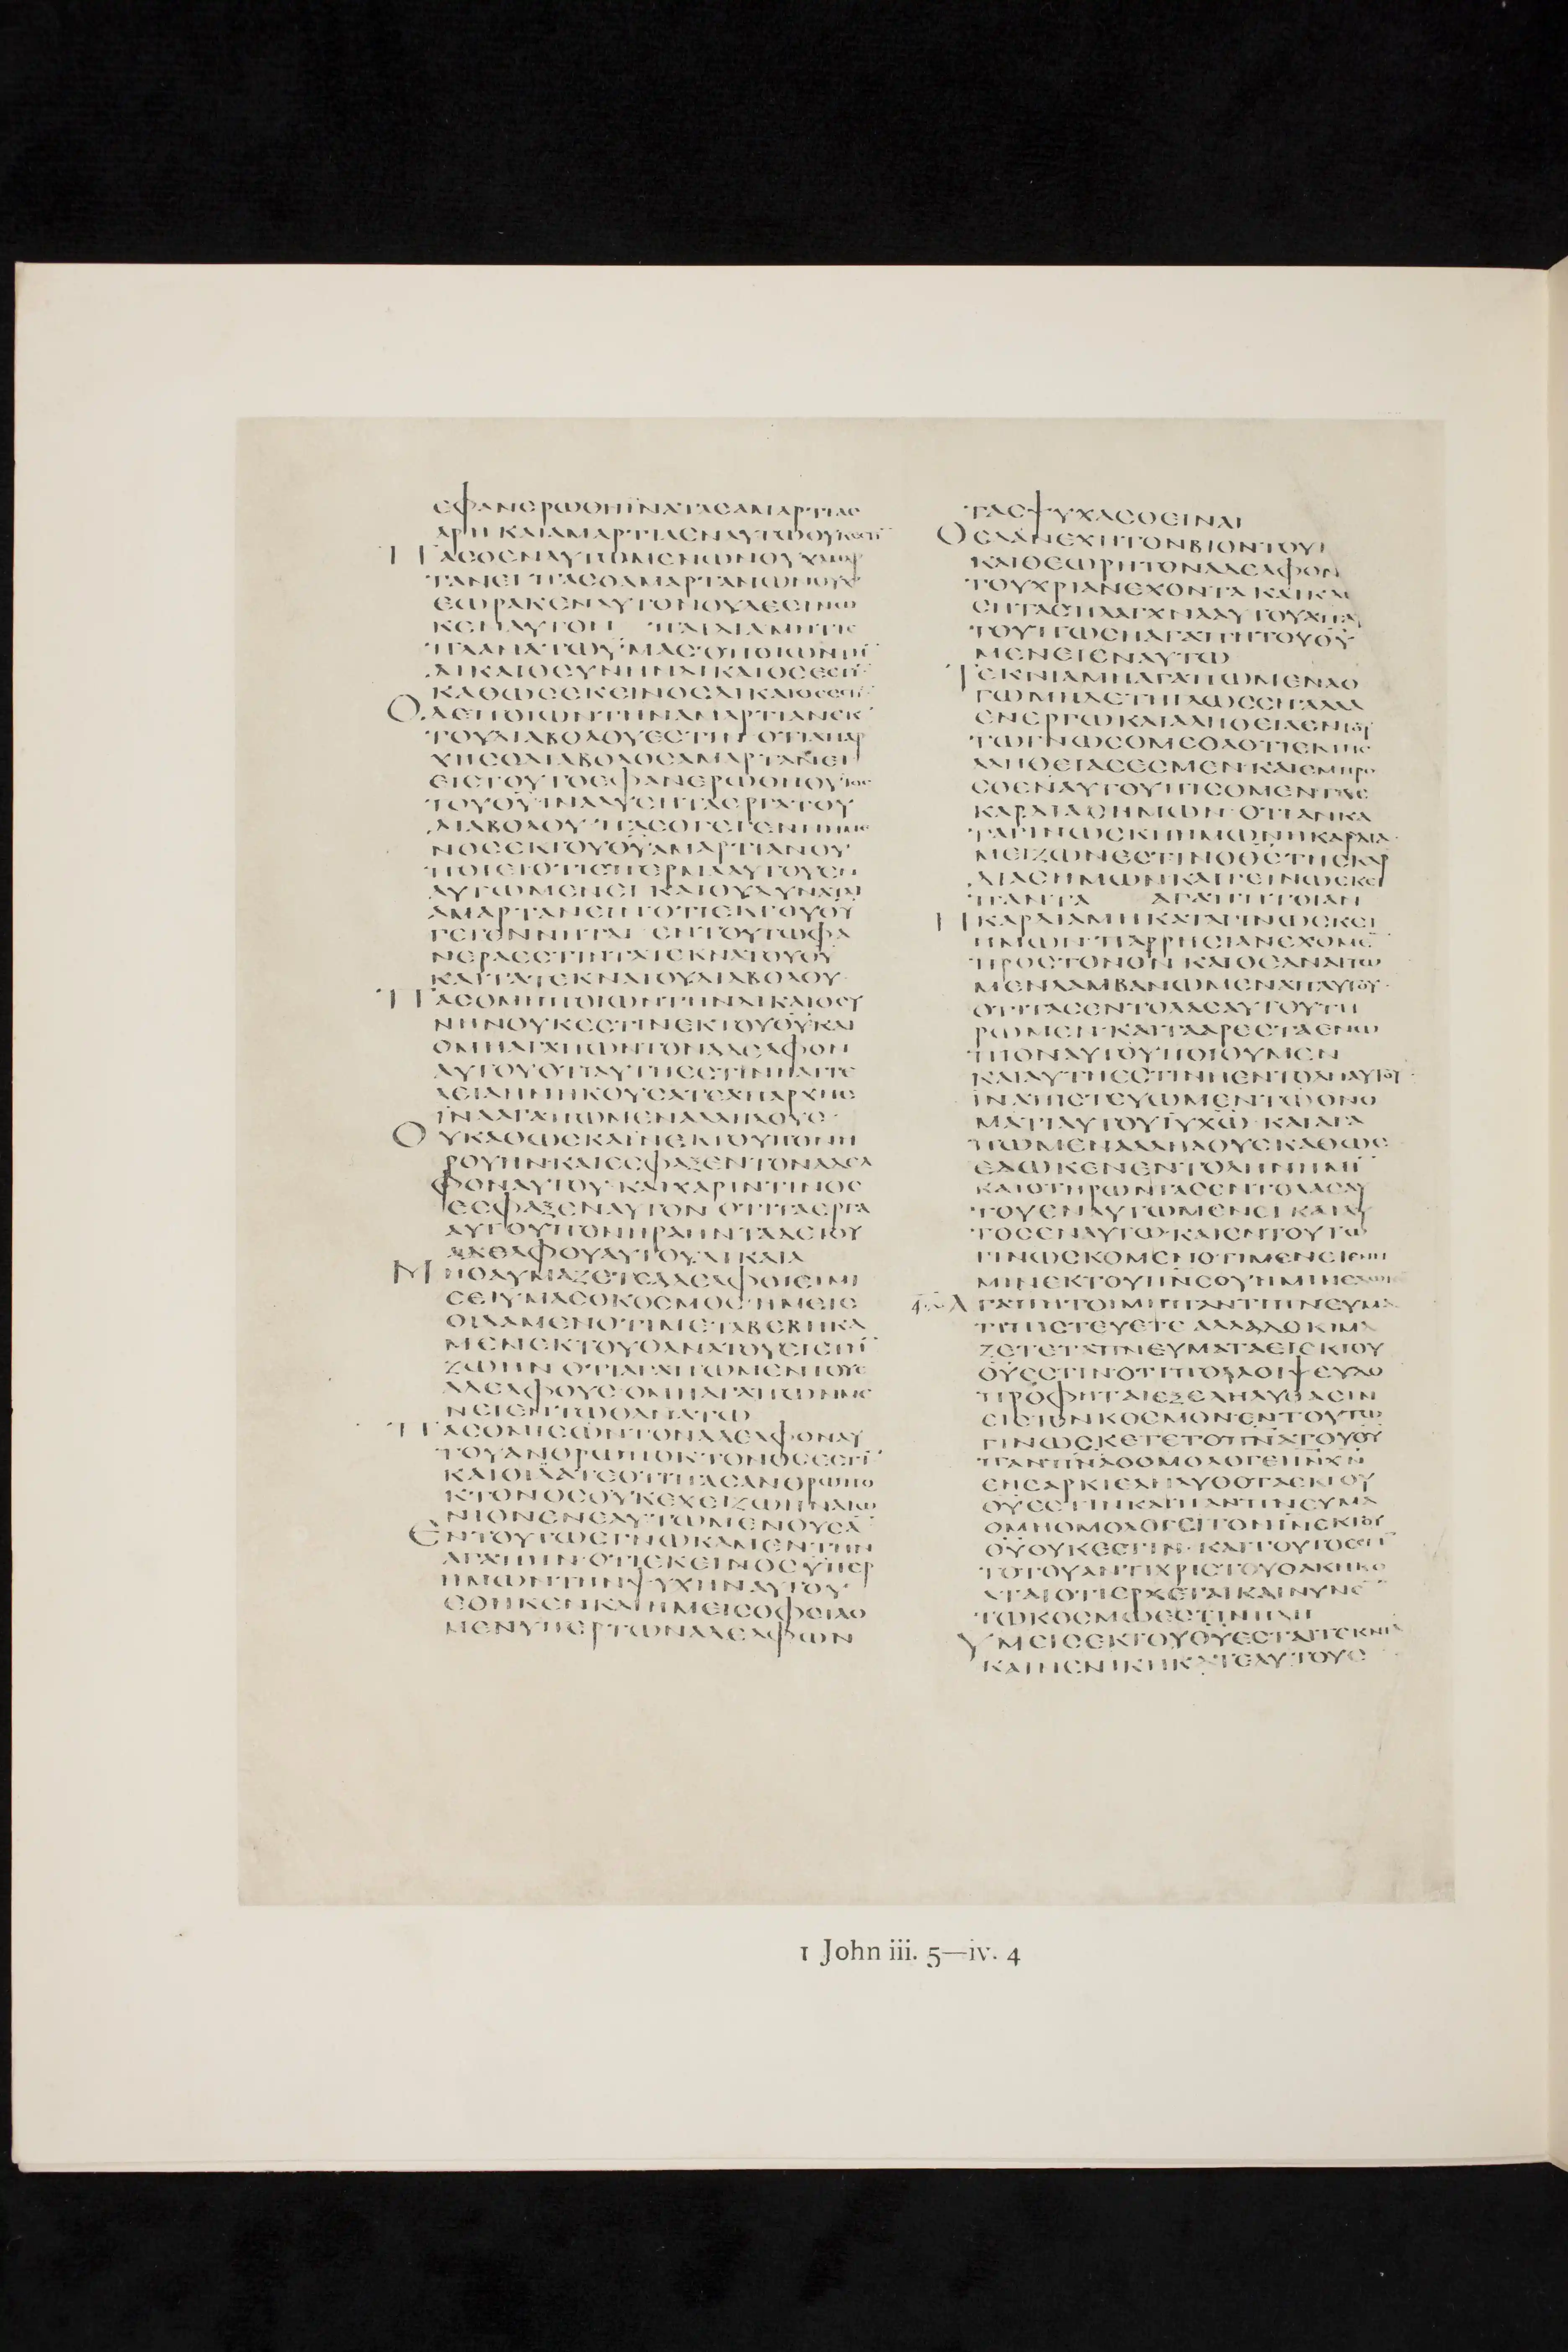 ΕΦΑΝΕΡΩΘΗΪΝΑΤΑϹΑΜΑΡΤΙΑϹ
ΑΡΗ ΚΑΙΑΜΑΡΤΙΑΕΝΑΥΤΩΟΥΚΕϹΤΙ̅
ΠΑϹΟΕΝΑΥΤΩΜΕΝΩΝΟΥΧΑΜΑΡ
ΤΑΝΕΙ ΠΑϹΟΑΜΑΡΤΑΝΩΝΟΥΧ
ΕΩΡΑΚΕΝΑΥΤΟΝΟΥΔΕΕΓΝΩ
ΚΕΝΑΥΤΟΝ ΠΑΙΔΙΑΜΗΤΙϹ
ΠΛΑΝΑΤΩΥΜΑϹ·ΟΠΟΙΩΝΤΗ̅
ΔΙΚΑΙΟϹΥΝΗΝΔΙΚΑΙΟϹΕϹΤΙ̅
ΚΑΘΩϹΕΚΕΙΝΟϹΔΙΚΑΙΟϹΕϹΤΙ̅
ΟΔΕΠΟΙΩΝΤΗΝΑΜΑΡΤΙΑΝΕΚ
ΤΟΥΔΙΑΒΟΛΟΥΕϹΤΙΝ·ΟΤΙΑΠΑΡ
ΧΗϹΟΔΙΑΒΟΛΟϹΑΜΑΡΤΑΝΕΙ
ΕΙϹΤΟΥΤΟΕΦΑΝΕΡΩΘΗΟΥΙΟϹ
ΤΟΥΘ̅Υ̅ΪΝΑΛΥϹΗΤΑΕΡΓΑΤΟΥ
ΔΙΑΒΟΛΟΥ·ΠΑϹΟΓΕΓΕΝΝΗΜΕ
ΝΟϹΕΚΤΟΥΘ̅Υ̅ΑΜΑΡΤΙΑΝΟΥ
ΠΟΙΕΙΟΤΙϹΠΕΡΜΑΑΥΤΟΥΕΝ
ΑΥΤΩΜΕΝΕΙ·ΚΑΙΟΥΔΥΝΑΤΑΙ
ΑΜΑΡΤΑΝΕΙΝΟΤΙΕΚΤΟΥΘ̅Υ̅
ΓΕΓΕΝΝΗΤΑΙ·ΕΝΤΟΥΤΩΦΑ
ΝΕΡΑΕϹΤΙΝΤΑΤΕΚΝΑΤΟΥΘ̅Υ̅
ΚΑΙΤΑΤΕΚΝΑΤΟΥΔΙΑΒΟΛΟΥ·
ΠΑϹΟΜΗΠΟΙΩΝΤΗΝΔΙΚΑΙΟϹΥ
ΝΗΝΟΥΚΕϹΤΙΝΕΚΤΟΥΘ̅Υ̅ΚΑΙ
ΟΜΗΑΓΑΠΩΝΤΟΝΑΔΕΛΦΟΝ
ΑΥΤΟΥΟΤΙΑΥΤΗΕϹΤΙΝΗΑΓΓΕ
ΛΕΙΑΗΝΗΚΟΥϹΑΤΕΑΠΑΡΧΗϹ
ΪΝΑΑΓΑΠΩΜΕΝΑΛΛΗΛΟΥϹ·
ΟΥΚΑΘΩϹΚΑΪΝΕΚΤΟΥΠΟΝΗ
ΡΟΥΗΝ·ΚΑΙΕϹΦΑΞΕΝΤΟΝΑΔΕΛ
ΦΟΝΑΥΤΟΥ·ΚΑΙΧΑΡΙΝΤΙΝΟϹ
ΕϹΦΑΞΕΝΑΥΤΟΝ·ΟΤΙΤΑΕΡΓΑ
ΑΥΤΟΥΠΟΝΗΡΑΗΝΤΑΔΕΤΟΥ
ΑΔΕΛΦΟΥΑΥΤΟΥΔΙΚΑΙΑ
ΜΗΘΑΥΜΑΖΕΤΕΑΔΕΛΦΟΙΕΙΜΙ
ϹΕΙΥΜΑϹΟΚΟϹΜΟϹ·ΗΜΕΙϹ
ΟΙΔΑΜΕΝΟΤΙΜΕΤΑΒΕΒΗΚΑ
ΜΕΝΕΚΤΟΥΘΑΝΑΤΟΥΕΙϹΤΗ̅
ΖΩΗΝ·ΟΤΙΑΓΑΠΩΜΕΝΤΟΥϹ
ΑΔΕΛΦΟΥϹ·ΟΜΗΑΓΑΠΩΝΜΕ
ΝΕΙΕΝΤΩΘΑΝΑΤΩ
ΠΑϹΟΜΙϹΩΝΤΟΝΑΔΕΛΦΟΝΑΥ
ΤΟΥΑΝΘΡΩΠΟΚΤΟΝΟϹΕϹΤΙ̅
ΚΑΙΟΙΔΑΤΕΟΤΙΠΑϹΑΝΘΡΩΠΟ
ΚΤΟΝΟϹΟΥΚΕΧΕΙΖΩΗΝΑΙΩ
ΝΙΟΝΕΝΕΑΥΤΩΜΕΝΟΥϹΑ̅
ΕΝΤΟΥΤΩΕΓΝΩΚΑΜΕΝΤΗΝ
ΑΓΑΠΗΝ·ΟΤΙΕΚΕΙΝΟϹΫΠΕΡ
ΗΜΩΝΤΗΝΨΥΧΗΝΑΥΤΟΥ
ΕΘΗΚΕΝΚΑΙΗΜΕΙϹΟΦΕΙΛΟ
ΜΕΝΥΠΕΡΤΩΝΑΔΕΛΦΩΝ
ΤΑϹΨΥΧΑϹΘΕΙΝΑΙ
ΟϹΔΑΝΕΧΗΤΟΝΒΙΟΝΤΟΥ
ΚΑΙΘΕΩΡΗΤΟΝΑΔΕΛΦΟΝ
ΤΟΥΧΡΙΑΝΕΧΟΝΤΑΚΑΙΚΛΙ
ϹΗΤΑϹΠΛΑΓΧΝΑΑΥΤΟΥΑΠΑ
ΤΟΥΠΩϹΗΑΓΑΠΗΤΟΥΘ̅Υ̅
ΜΕΝΕΙΕΝΑΥΤΩ
ΤΕΚΝΙΑΜΗΑΓΑΠΩΜΕΝΛΟ
ΓΩΜΗΔΕΤΗΓΛΩϹϹΗΑΛΛ
ΕΝΕΡΓΩΚΑΙΑΛΗΘΕΙΑΕΝΤΟΥ
ΤΩΓΝΩϹΟΜΕΘΑΟΤΙΕΚΤΗϹ
ΑΛΗΘΕΙΑϹΕϹΜΕΝ·ΚΑΙΕΜΠΡΟ
ϹΘΕΝΑΥΤΟΥΠΙϹΟΜΕΝΤΑϹ
ΚΑΡΔΙΑϹΗΜΩΝ·ΟΤΙΑΝΚΑ
ΤΑΓΙΝΩϹΚΗΗΜΩΝΗΚΑΡΔΙΑ·
ΜΕΙΖΩΝΕϹΤΙΝΟΘ̅Ϲ̅ΤΗϹΚΑΡ
ΔΙΑϹΗΜΩΝΚΑΙΓΕΙΝΩϹΚΕΙ
ΠΑΝΤΑ ΑΓΑΠΗΤΟΙΑΝ
ΗΚΑΡΔΙΑΜΗΚΑΤΑΓΙΝΩϹΚΕΙ
ΗΜΩΝ·ΠΑΡΡΗϹΙΑΝΕΧΟΜΕ̅
ΠΡΟϹΤΟΝΘ̅Ν̅·ΚΑΙΟΕΑΝΑΙΤΩ
ΜΕΝΛΑΜΒΑΝΩΜΕΝΑΠΑΥΤΟΥ·
ΟΤΙΤΑϹΕΝΤΟΛΑϹΑΥΤΟΥΤΗ
ΡΩΜΕΝ·ΚΑΙΤΑΑΡΕϹΤΑΕΝΩ
ΠΙΟΝΑΥΤΟΥΠΟΙΟΥΜΕΝ
ΚΑΙΑΥΤΗΕϹΤΙΝΗΕΝΤΟΛΗΑΥΤΟΥ·
ΪΝΑΠΙϹΤΕΥΩΜΕΝΤΩΟΝΟ
ΜΑΤΙΑΥΤΟΥΙ̅Υ̅Χ̅Ω̅·ΚΑΙΑΓΑ
ΠΩΜΕΝΑΛΛΗΛΟΥϹΚΑΘΩϹ
ΕΔΩΚΕΝΕΝΤΟΛΗΝΗΜΙ̅
ΚΑΙΟΤΗΡΩΝΤΑϹΕΝΤΟΛΑϹΑΥ
ΤΟΥΕΝΑΥΤΩΜΕΝΕΙ·ΚΑΙΑΥ
ΤΟϹΕΝΑΥΤΩ·ΚΑΙΕΝΤΟΥΤΩ
ΓΙΝΩϹΚΟΜΕΝΟΤΙΜΕΝΕΙΕΝΗ
ΜΙΝΕΚΤΟΥΠ̅Ν̅Ϲ̅ΟΥΗΜΙΝΕΔΩΚΕ
ΑΓΑΠΗΤΟΙΜΗΠΑΝΤΙΠΝΕΥΜΑ
ΤΙΠΙϹΤΕΥΕΤΕ ΑΛΛΑΔΟΚΙΜΑ
ΖΕΤΕΤΑΠΝΕΥΜΑΤΑΕΙΕΚΤΟΥ
Θ̅Υ̅ΕϹΤΙΝ·ΟΤΙΠΟΛΛΟΙΨΕΥΔΟ
ΠΡΟΦΗΤΑΙΕΞΕΛΗΛΥΘΑϹΙΝ
ΕΙϹΤΟΝΚΟϹΜΟΝ·ΕΝΤΟΥΤΩ
ΓΙΝΩϹΚΕΤΕΤΟΠ̅Ν̅Α̅ΤΟΥΘ̅Υ̅
ΠΑΝΠ̅Ν̅Α̅ΟΟΜΟΛΟΓΕΙΙ̅Ν̅Χ̅Ν̅
ΕΝϹΑΡΚΙΕΛΗΛΥΘΟΤΑΕΚΤΟΥ
Θ̅Υ̅ΕϹΤΙΝΚΑΙΠΑΝΤΙΝΕΥΜΑ
ΟΜΗΟΜΟΛΟΓΕΙΤΟΝΙ̅Ν̅ΕΚΤΟΥ
Θ̅Υ̅ΟΥΚΕϹΤΙΝ·ΚΑΙΤΟΥΤΟΕϹΤΙ̅
ΤΟΤΟΥΑΝΤΙΧΡΙϹΤΟΥΟΑΚΗΚΟ
ΑΤΑΙΟΤΙΕΡΧΕΤΑΙΚΑΙΝΥΝΕ̅
ΤΩΚΟϹΜΩΕϹΤΙΝΗΔΗ
ΥΜΕΙϹΕΚΤΟΥΘ̅Υ̅ΕϹΤΑΙΤΕΚΝΙΑ
ΚΑΙΝΕΝΙΚΗΚΑΤΕΑΥΤΟΥϹ
1 John iii. 5—iv. 4